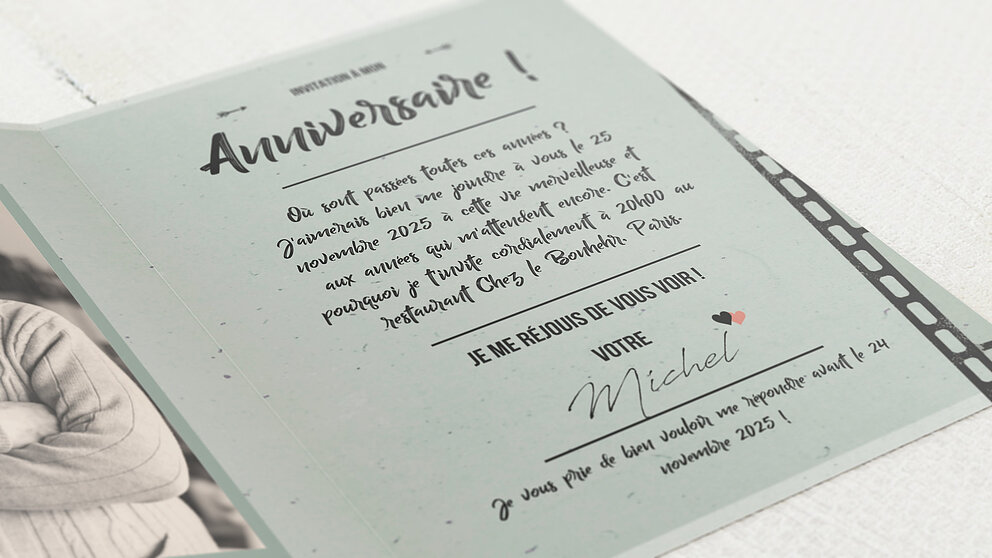 INVITATION A MON
Anniversaire !
Où sont passées toutes ces années ?
J'aimerais bien me joindre à vous le 25
novembre 2025 à cette vie merveilleuse et
aux années qui m'attendent encore. C'est
pourquoi je t'invite cordialement à 20h00 au
restaurant Chez le Bonhehr. Paris.
JE ME RÉJOUIS DE VOUS VOIR !
VOTRE
Michel
Je vous prie de bien vouloir me répondre avant le 24
novembre 2025 !